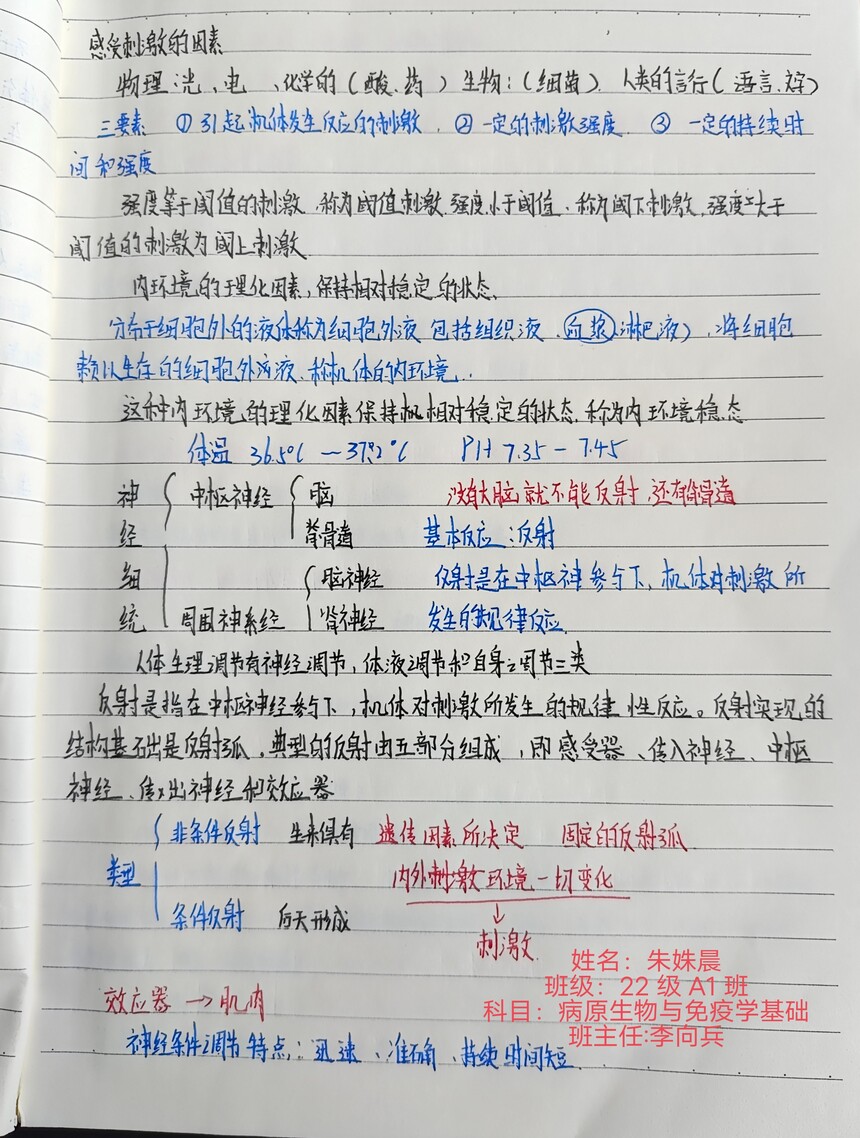 感受刺激的因素
物理:光、电、化学的(酸.药)生物:(细菌). 人类的言行(语言.文字)
三要素 ①引起机体发生反应的刺激. ②一定的刺激强度. ③ 一定的持续时
间和强度
强度等于阈值的刺激.称为阈值刺激.强度小于阈值.称为阈下刺激.强度大于
阈值的刺激为阈上刺激
内环境的理化因素,保持相对稳定的状态、
分布于细胞外的液体称为细胞外液 包括组织液.血浆.淋巴液).将细胞
赖以生存的细胞外液.称机体的内环境.
这种内环境的理化因素保持机相对稳定的状态.称为内环境稳态
体温 36.5℃ —37.2℃ PH 7.35-7.45
神 中枢神经 脑 没有大脑就不能反射 还有脊骨道
经 脊骨道 基本反应:反射
细 脑神经 反射是在中枢神参与下、机体对刺激所
统 周围神系经 肾神经 发生的规律反应.
人体生理调节有神经调节,体液调节和自身调节三类
反射是指在中枢神经参与下,机体对刺激所发生的规律性反应。反射实现的
结构基础是反射弧.典型的反射由五部分组成,即感受器、传入神经、中枢
神经、传出神经和效应器
非条件反射 生来俱有 遗传因素所决定 固定的反射弧
类型 内外刺激环境一切变化
条件反射 后天形成
↓
刺激
效应器→肌肉
神经条件调节特点:迅速、准确、持续时间短
姓名:朱姝晨
班级:22级A1班
科目:病原生物与免疫学基础
班主任:李向兵